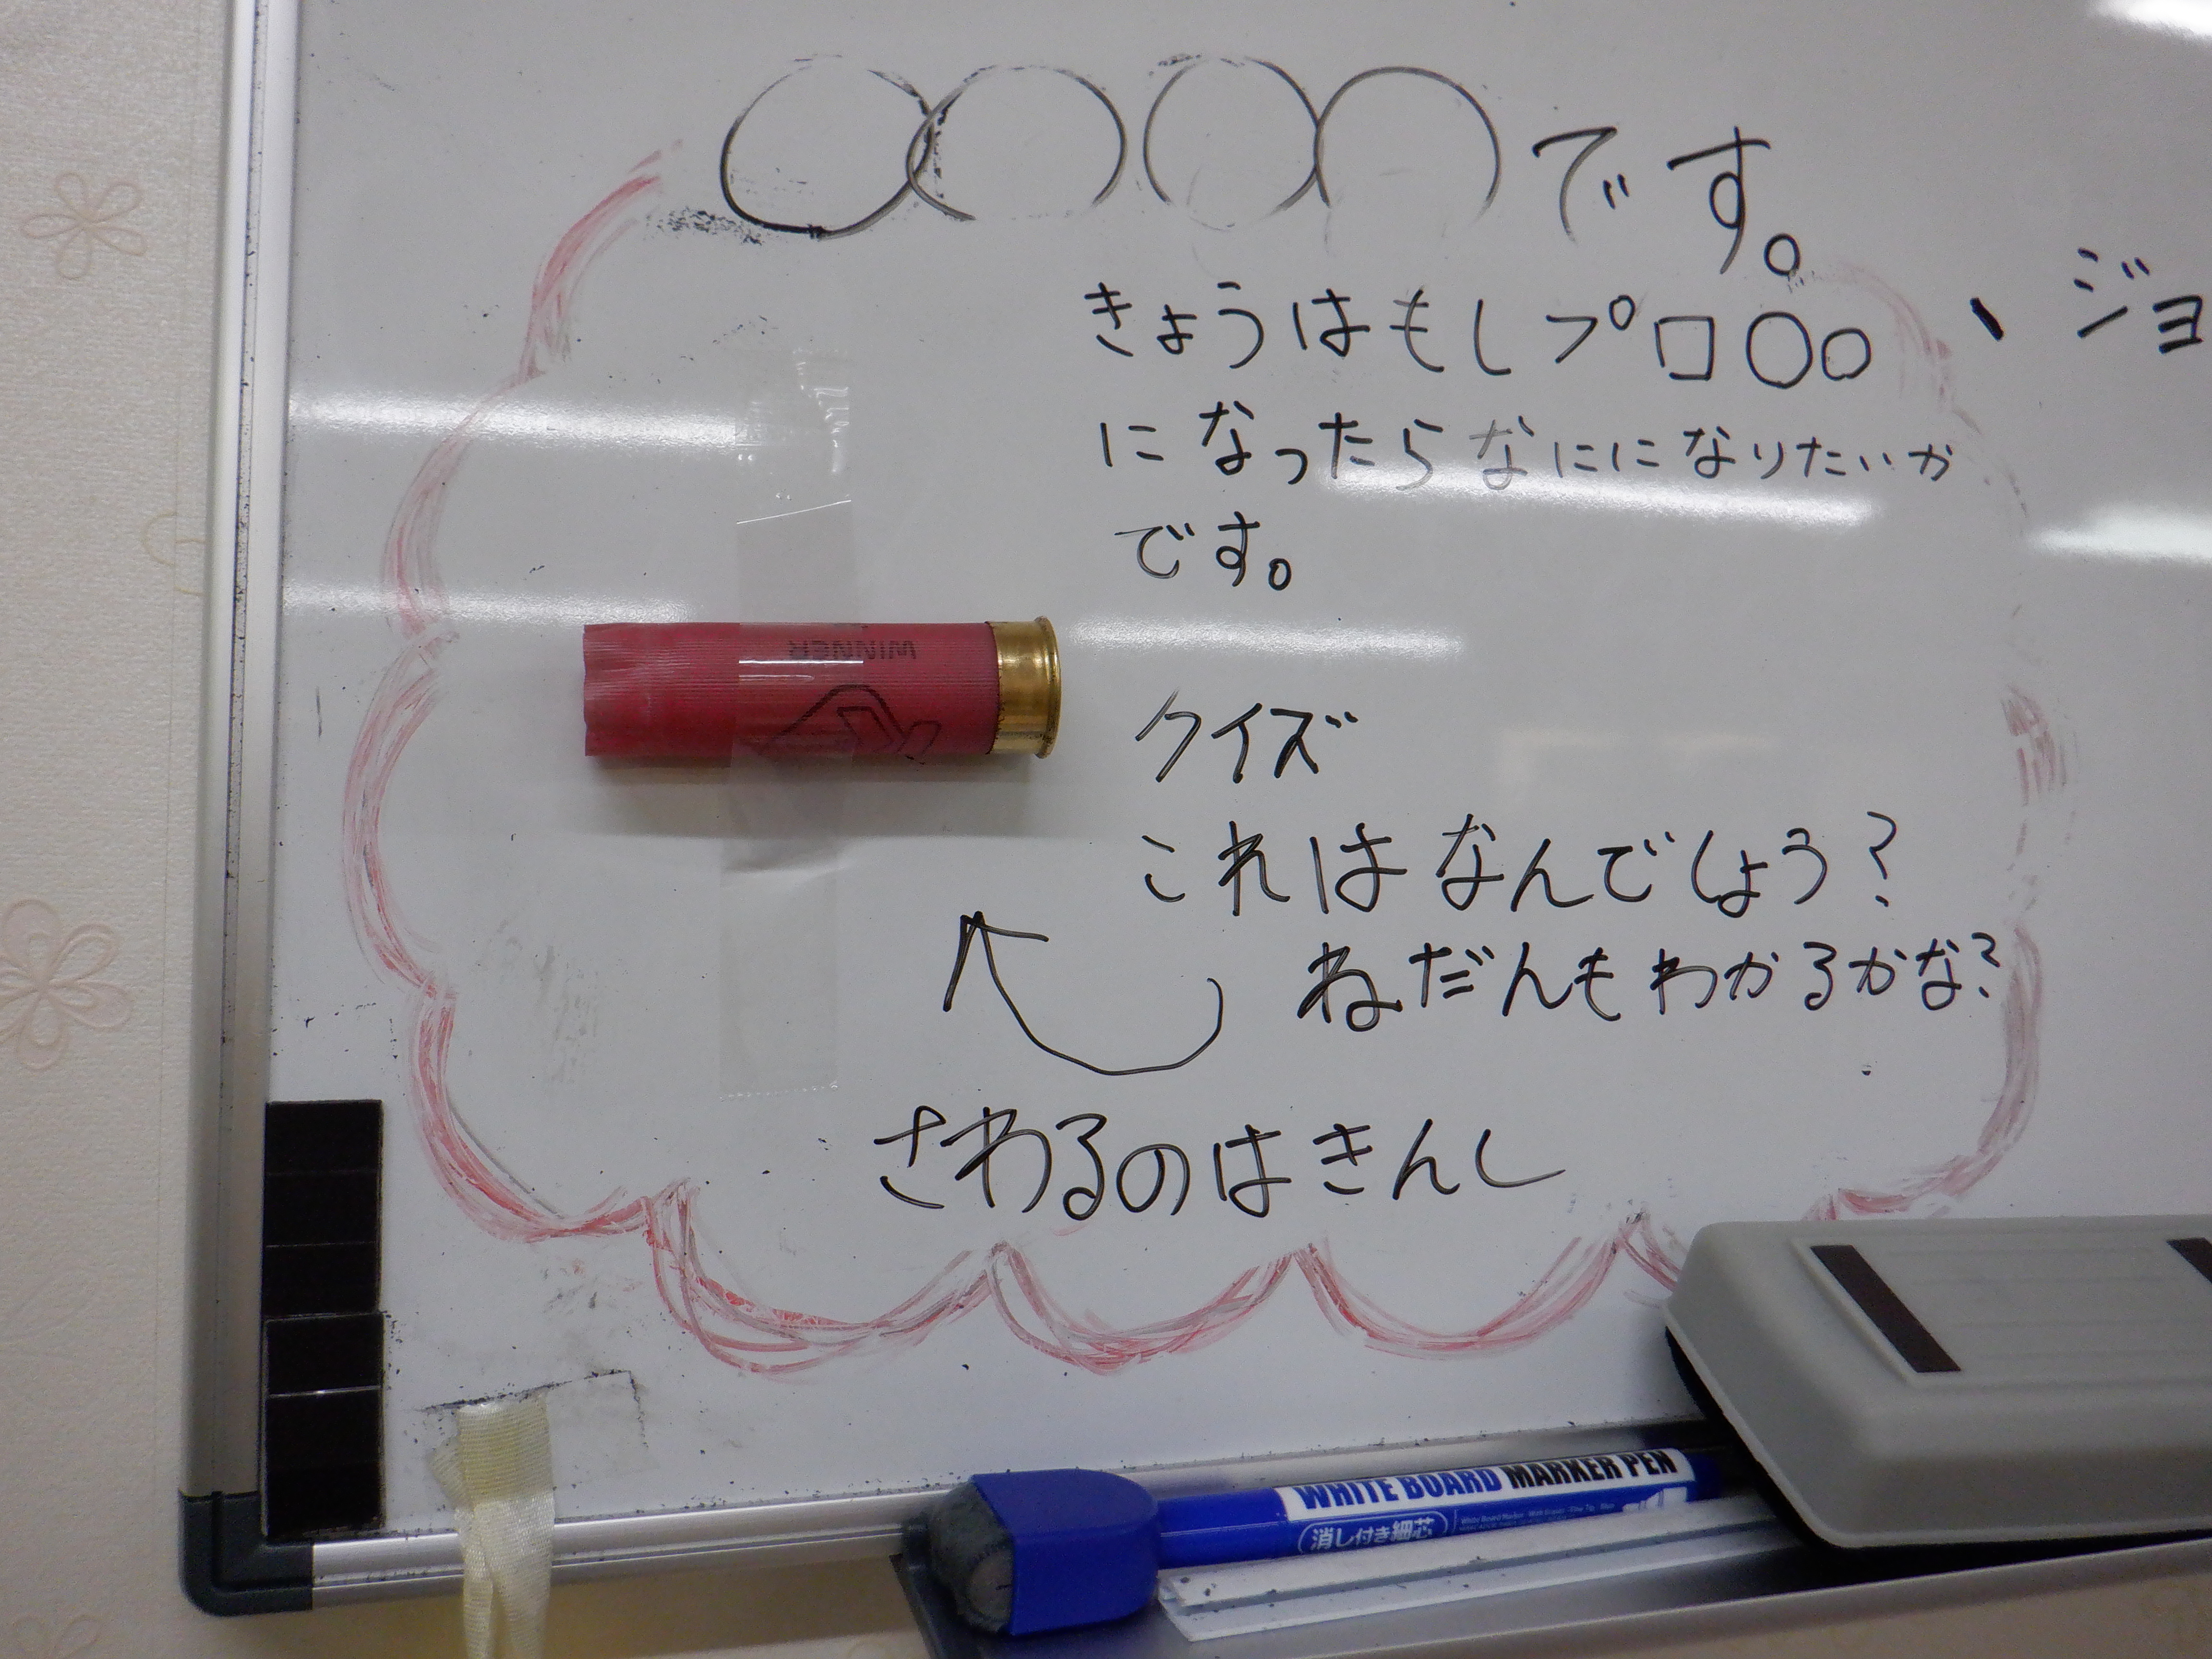 〇〇〇〇です。
きょうはもしプロ〇〇
になったらなにになりたいか
です。
、ジョ
WINNER
クイズ
これはなんでしょう?
ねだんもわかるかな?
さわるのはきんし
WHITE BOARD MARKER PEN
消し付き細芯